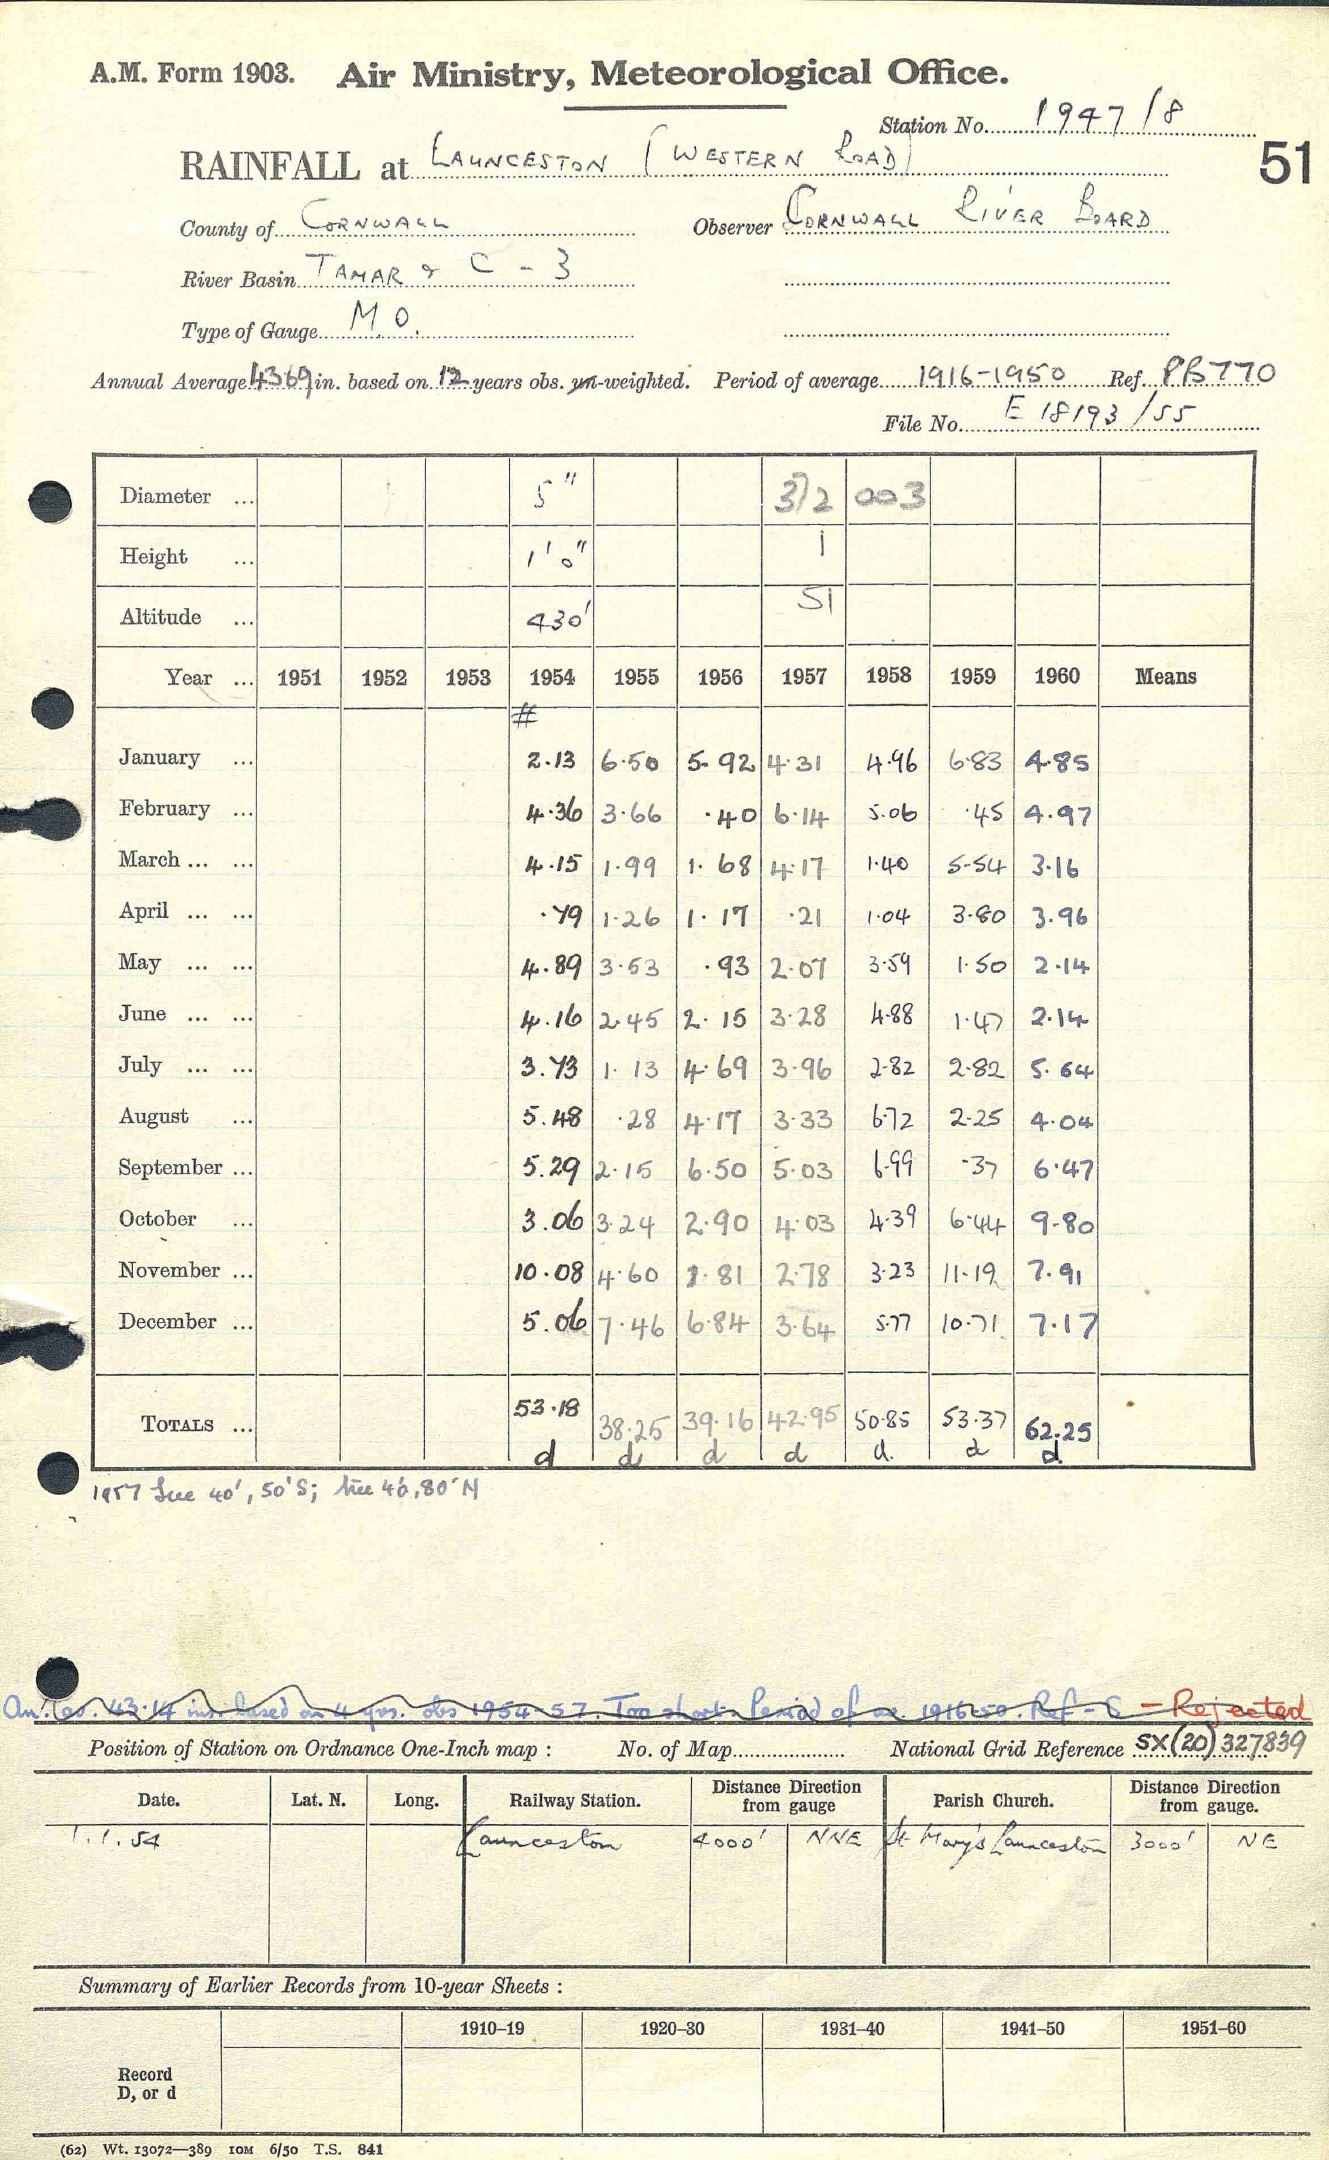 A.M. Form 1903. Air Ministry, Meteorological Office.
Station No. 1947/8
51
RAINFALL at LAUNCESTON (WESTERN ROAD)
County of CORNWALL Observer CORNWALL RIVER BOARD
River Basin TAMAR & C - 3
Type of Gauge M.O.
Annual Average 4369 in. based on 12 years obs. un-weighted. Period of average 1916-1950 Ref. PB770
File No. E 18193/55
Diameter ... 5" 3)2 003
Height ... 1'0" 1
Altitude ... 430' 51
Year ... 1951 1952 1953 1954 1955 1956 1957 1958 1959 1960 Means
#
January ... 2.13 6.50 5.92 4.31 4.96 6.83 4.85
February ... 4.36 3.66 .40 6.14 5.06 .45 4.97
March ... ... 4.15 1.99 1.68 4.17 1.40 5.54 3.16
April ... ... .79 1.26 1.17 .21 1.04 3.80 3.96
May ... ... 4.89 3.53 .93 2.07 3.59 1.50 2.14
June ... ... 4.16 2.45 2.15 3.28 4.88 1.47 2.14
July ... ... 3.73 1.13 4.69 3.96 2.82 2.82 5.64
August ... 5.48 .28 4.17 3.33 6.72 2.25 4.04
September ... 5.29 2.15 6.50 5.03 6.99 .37 6.47
October ... 3.06 3.24 2.90 4.03 4.39 6.44 9.80
November ... 10.08 4.60 1.81 2.78 3.23 11.19 7.91
December ... 5.06 7.46 6.84 3.64 5.77 10.71 7.17
TOTALS ... 53.18 38.25 39.16 42.95 50.85 53.37 62.25
d d d d d. d d
1957 Tree 40', 50'S; tree 40', 80'N
An. av. 43.14 ins. based on 4 yrs. obs 1954-57. Too short. Period of av. 1916-50. Ref - S - Rejected
Position of Station on Ordnance One-Inch map : No. of Map National Grid Reference SX(20)327839
Date. Lat. N. Long. Railway Station. Distance from gauge Direction Parish Church. Distance from gauge. Direction
1.1.54 Launceston 4000' NNE St Mary's Launceston 3000' NE
Summary of Earlier Records from 10-year Sheets :
1910–19 1920–30 1931–40 1941–50 1951–60
Record
D, or d
(62) Wt. 13072—389 10M 6/50 T.S. 841